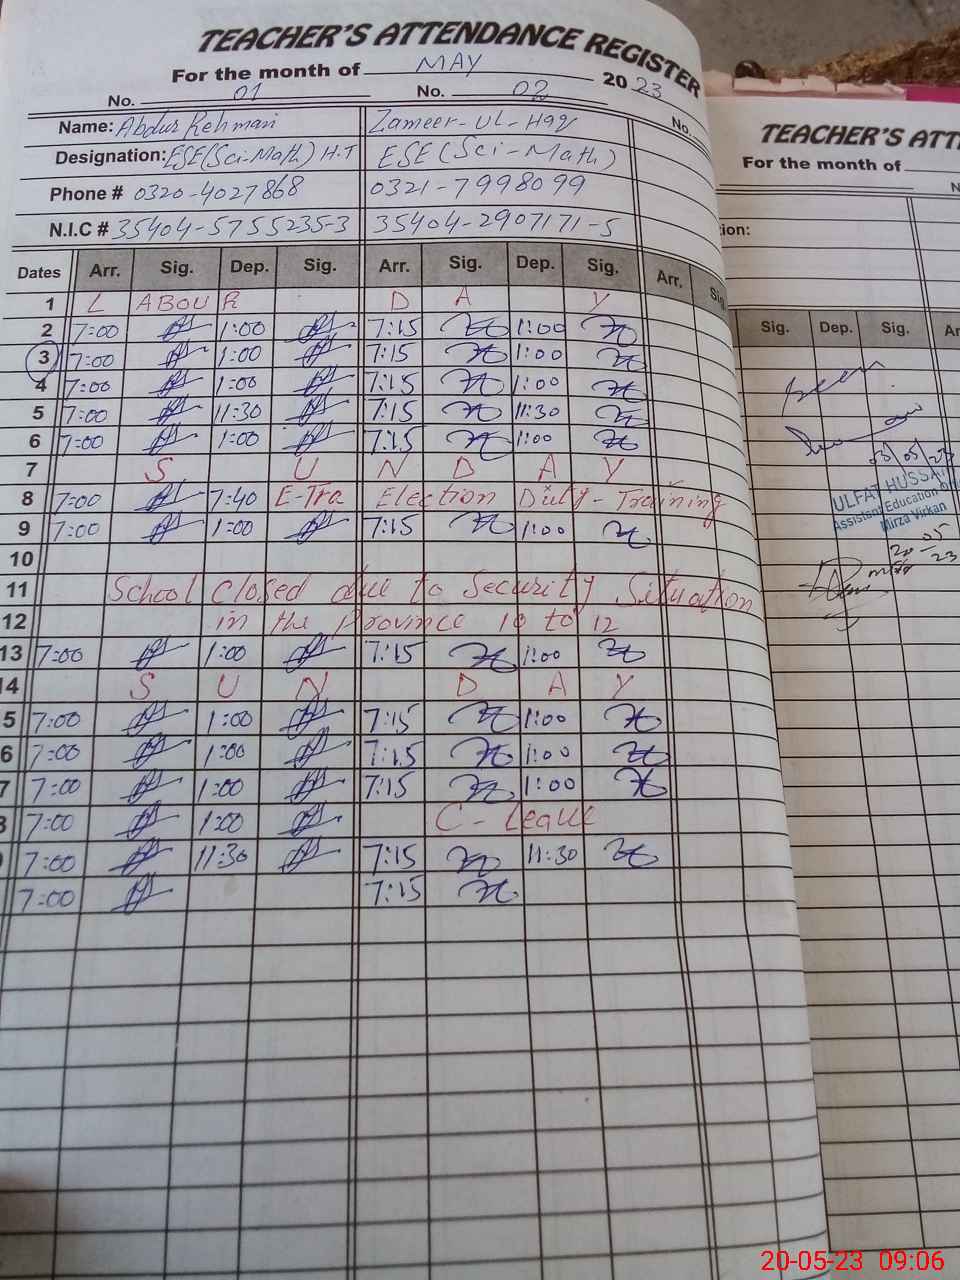 TEACHER'S ATTENDANCE REGISTER
For the month of MAY 2023
No. 01 No. 02 No.
Name: Abdur Rehman Zameer-ul-Haq
Designation: ESE(Sci-Math) H.T ESE (Sci-Math)
Phone # 0320-4027868 0321-7998099
N.I.C # 35404-5755235-3 35404-2907171-5
Dates Arr. Sig. Dep. Sig. Arr. Sig. Dep. Sig. Arr. Sig.
1 L ABOU R D A Y
2 7:00 1:00 7:15 1:00
3 7:00 1:00 7:15 1:00
4 7:00 1:00 7:15 1:00
5 7:00 11:30 7:15 11:30
6 7:00 1:00 7:15 1:00
7 S U N D A Y
8 7:00 7:40 E-Tra Election Duty-Training
9 7:00 1:00 7:15 1:00
10
11 School closed due to Security Situation
12 in the Province 10 to 12
13 7:00 1:00 7:15 1:00
14 S U N D A Y
5 7:00 1:00 7:15 1:00
6 7:00 1:00 7:15 1:00
7 7:00 1:00 7:15 1:00
8 7:00 1:00 C-Leave
7:00 11:30 7:15 11:30
7:00 7:15
TEACHER'S ATT
For the month of
N
tion:
Sig. Dep. Sig. Ar
Seen
03/05/23
ULFAT HUSSA
Assistant Education Offi
Mirza Virkan
20-05
23
20-05-23 09:06